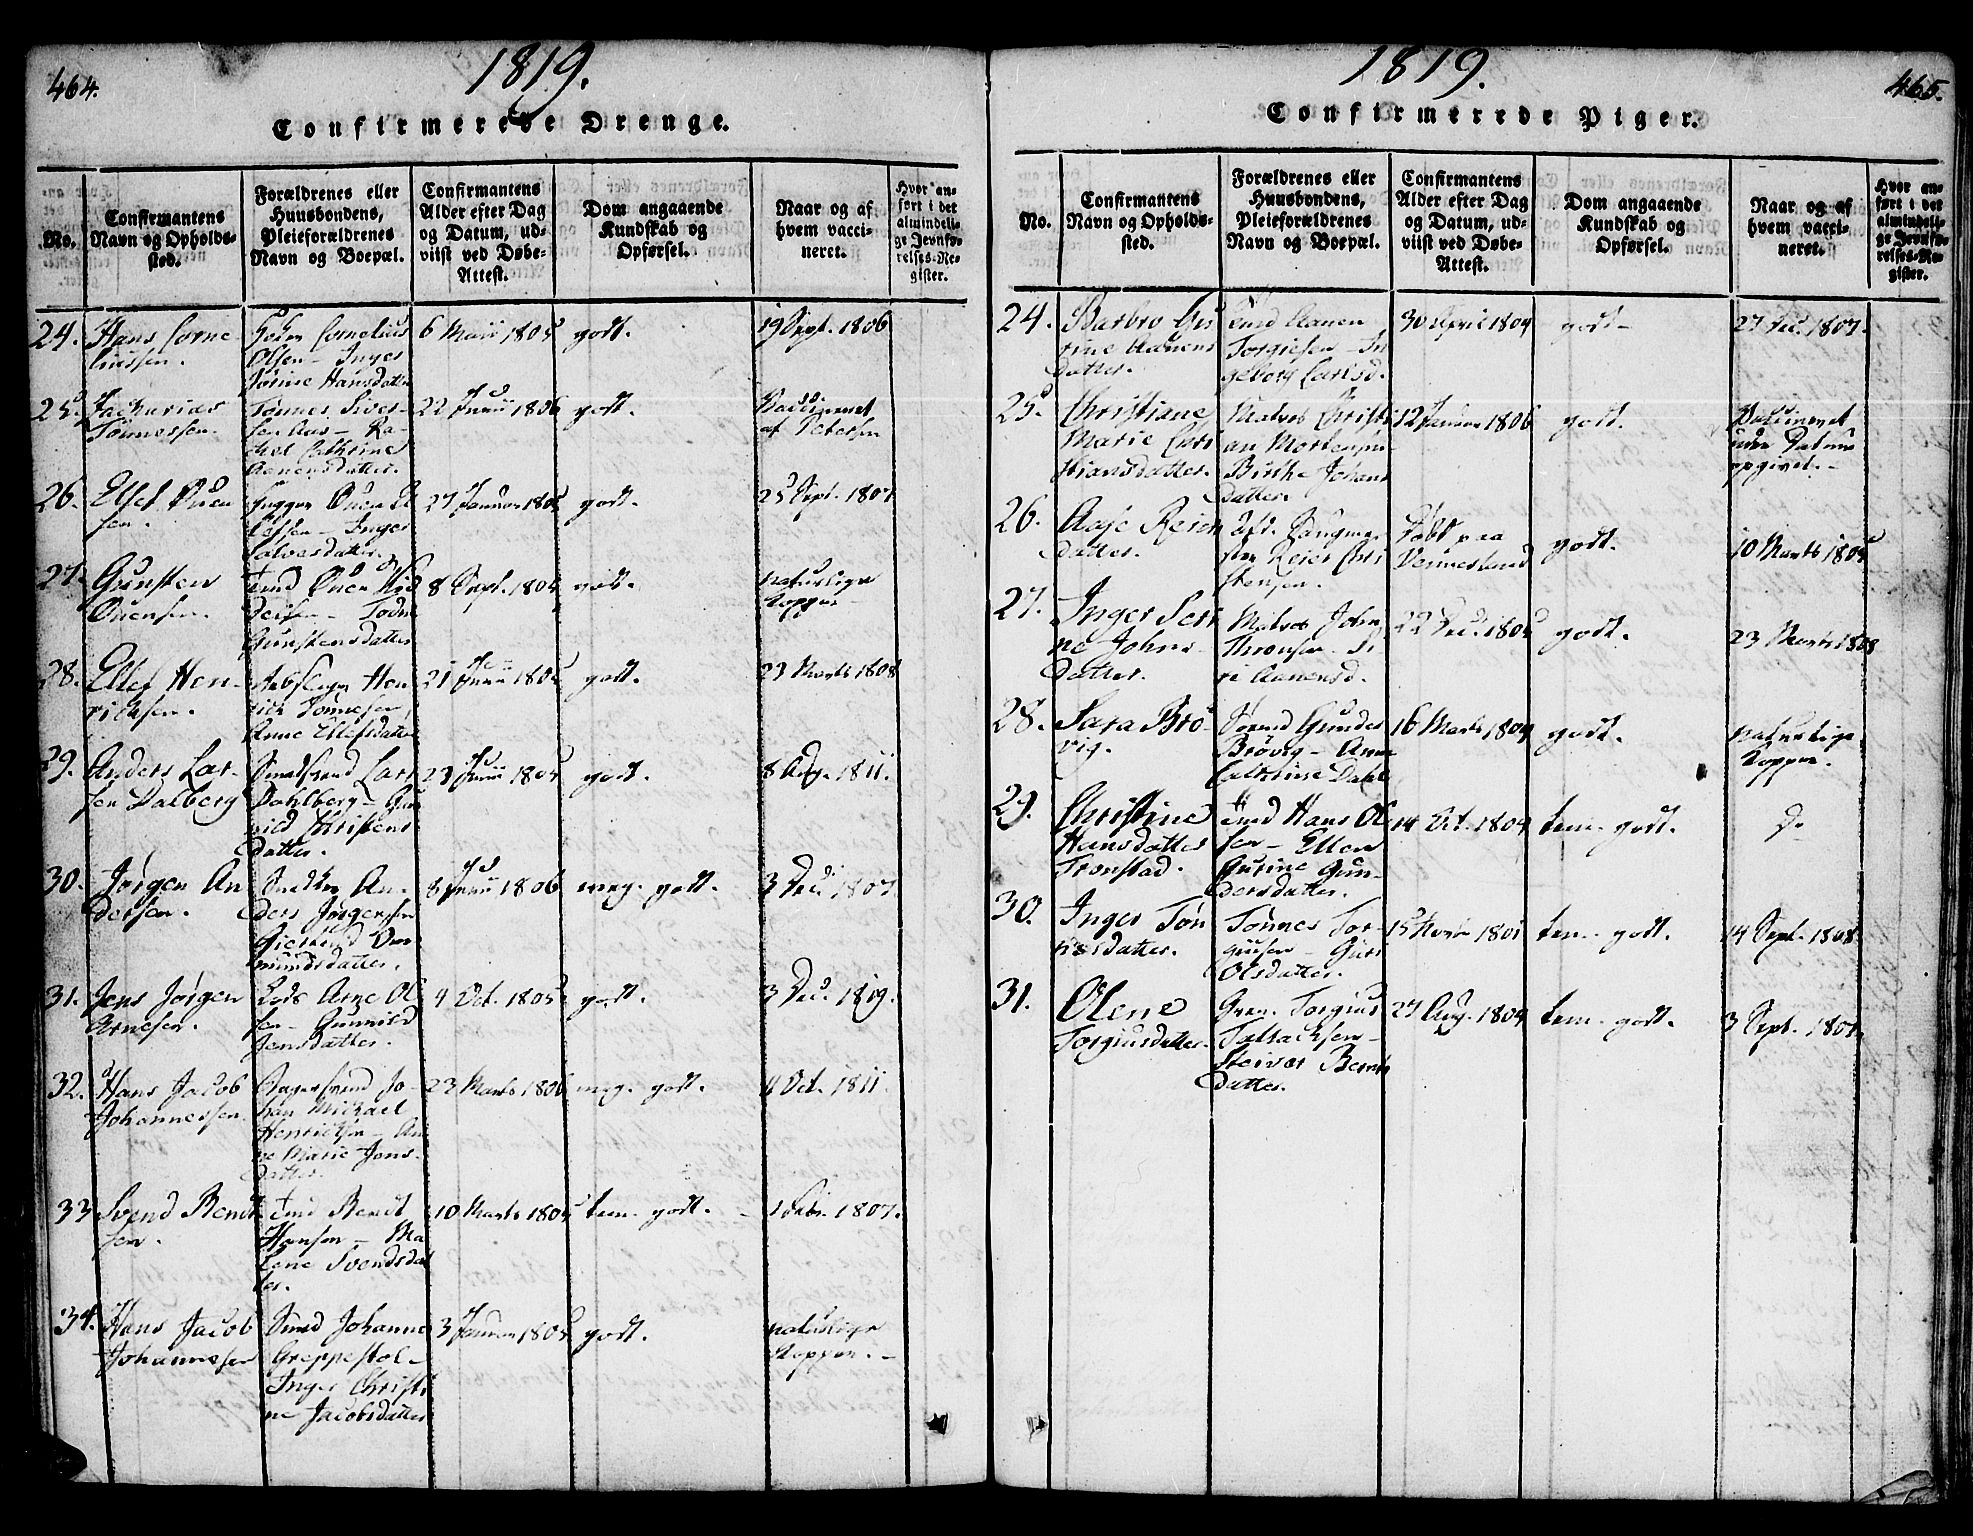 464.
1819.
Confirmerede Drenge.
No.
Confirmantens
Navn og Opholds-
sted.
Forældrenes eller
Huusbondens,
Pleieforældrenes
Navn og Boepæl.
Confirmantens
Alder efter Dag
og Datum, ud-
viist ved Døbe-
Attest.
Dom angaaende
Kundskab og
Opførsel.
Naar og af
hvem vacci-
neret.
Hvor an-
ført i det
almindeli-
ge Jevnfø-
relses-Re-
gister.
24. Hans Corne
liussen.
Cornelius
Olsen - Inger
Jørine Hansdatter
6 Maii 1805
godt.
19 Sept. 1806
25. Zacharias
Tønnessen.
Tønnes Siver-
sen Aas - Ra-
chel Cathrine
Aanensdatter.
22 Junii 1806
godt.
Vaccineret
af Petersen
26. Ellef Ouen
sen.
Ouen El
lefsen - Inger
Salvesdatter.
27 Januar 1805
godt.
25 Sept. 1807
27. Gunsten
Ouensen.
Ouen
- Todne
Gunstensdatter
8 Sept. 1804
godt.
naturlige
Kopper
28. Ellef Hen-
richsen.
Hen
rich Tønnesen,
Anne Ellefsdatter
21 Junii 1805
godt.
23 Marts 1808
29. Anders Lar-
sen Dalberg
Lars
Dahlberg - Gu
nild Christens
datter.
23 Junii 1805
godt.
8 Aug. 1811.
30. Jørgen An
dersen.
Snedker An-
ders Jørgensen
8 Junii 1806
meg. godt.
3 Dec. 1807.
31. Jens Jørgen
Arnesen.
Lods Arne Ol
sen - Gunnild
Jensdatter.
4 Oct. 1805
godt.
3 Dec. 1819.
32. Hans Jacob
Johannessen.
Jo-
han Michael
Henrichsen - An
ne Marie Jens-
datter.
23 Marts 1806
meg. godt.
4 Oct. 1811
33 Svend Bendt
sen.
Bendt
Hansen - Ma
lene Svendsdat
ter.
10 Marts 1805
tem. godt.
1 Febr. 1807.
34. Hans Jacob
Johannesen
Smed Johannes
Greppestol -
Inger Christi
ne Jacobsdatter
3 Januar 1805
godt.
naturlige
Kopper. -
465.
1819.
Confirmerede Piger.
No.
Confirmantens
Navn og Opholds-
sted.
Forældrenes eller
Huusbondens,
Pleieforældrenes
Navn og Boepæl.
Confirmantens
Alder efter Dag
og Datum, ud-
viist ved Døbe-
Attest.
Dom angaaende
Kundskab og
Opførsel.
Naar og af
hvem vacci-
neret.
Hvor an-
ført i det
almindeli-
ge Jevnfø-
relses-Re-
gister.
24. Barbro Gu
rine Aanens
datter.
Aanen
Torgiesen - In
geborg Larisd.
30 April 1804
godt -
27 Dec. 1807.
25. Christiane
Marie Chri
stiansdatter.
Matros Christi
an Mortensen
Birthe Johans
datter.
12 Januar 1806
godt.
Vaccineret
uden Datum
opgivet. -
26. Aase Reiers
datter.
Reier Chri
stensen.
Døbt paa
Vennesland
godt.
10 Marts 1805
27. Inger Seri
ne Johns
datter.
Matros John
Thronsen - Si
ri Aanensd.
22 Dec. 1805
godt.
23 Marts 1808
28. Sara Brø
vig.
Svend Gundes
Brøvig - Anne
Cathrine Dahl
16 Marts 1804
godt.
naturlige
Kopper.
29. Christine
Hansdatter
Tronstad.
Hans Ol
sen - Ellen
Gurine Gun-
dersdatter.
14 Oct. 1804
tem. godt.
Do
30. Inger Tøn
nesdatter.
Tønnes Tor-
giusen - Guri
Olsdatter.
15 1801
tem. godt.
14 Sept. 1808
31. Olene
Torgiusdatter.
Torgius
Tallachsen -
Steivor Bernts
datter.
27 Aug. 1804
tem. godt.
3 Sept. 1807